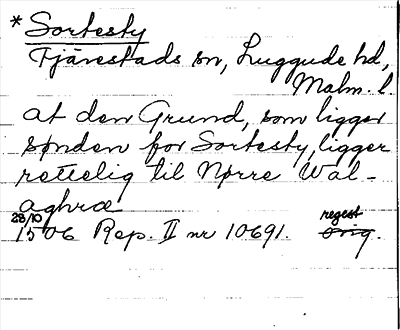 * Sortesty
Fjärestads sn, Luggude hd,
Malm. l.
at den Grund, som ligger
sønden for Sortesty, ligger
rettelig til Nørre Wal-
aghræ
28/10
1506 Rep. II nr 10691. regest
orig.